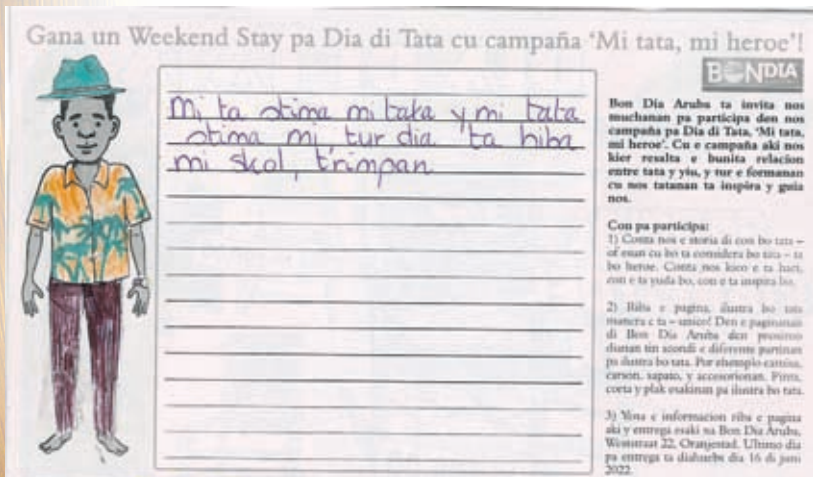 Gana un Weekend Stay pa Dia di Tata cu campaña ‘Mi tata, mi heroe’!
BONDIA
Mi ta stima mi tata y mi tata
stima mi, tur dia ta hiba
mi skol, trimpan
Bon Dia Aruba ta invita nos
muchanan pa participa den nos
campaña pa Dia di Tata, ‘Mi tata,
mi heroe’. Cu e campaña aki nos
kier resalta e bunita relacion
entre tata y yiu, y tur e formanan
cu nos tatanan ta inspira y guia
nos.
Con pa participa:
1) Conta nos e storia di con bo tata –
of esun cu bo ta considera bo tata – ta
bo heroe. Conta nos kico e ta haci,
con e ta yuda bo, con e ta inspira bo.
2) Riba e pagina, ilustra bo tata
manera e ta – unico! Den e paginanan
di Bon Dia Aruba den proximo
dianan tin scondi e diferente partinan
pa ilustra bo tata. Por ehempio camisa,
carson, sapato, y accesorionan. Pinta,
corta y plak esakinan pa ilustra bo tata.
3) Yena e informacion riba e pagina
aki y entrega esaki na Bon Dia Aruba,
Weststraat 22, Oranjestad. Ultimo dia
pa entrega ta diahuebs dia 16 di juni
2022.